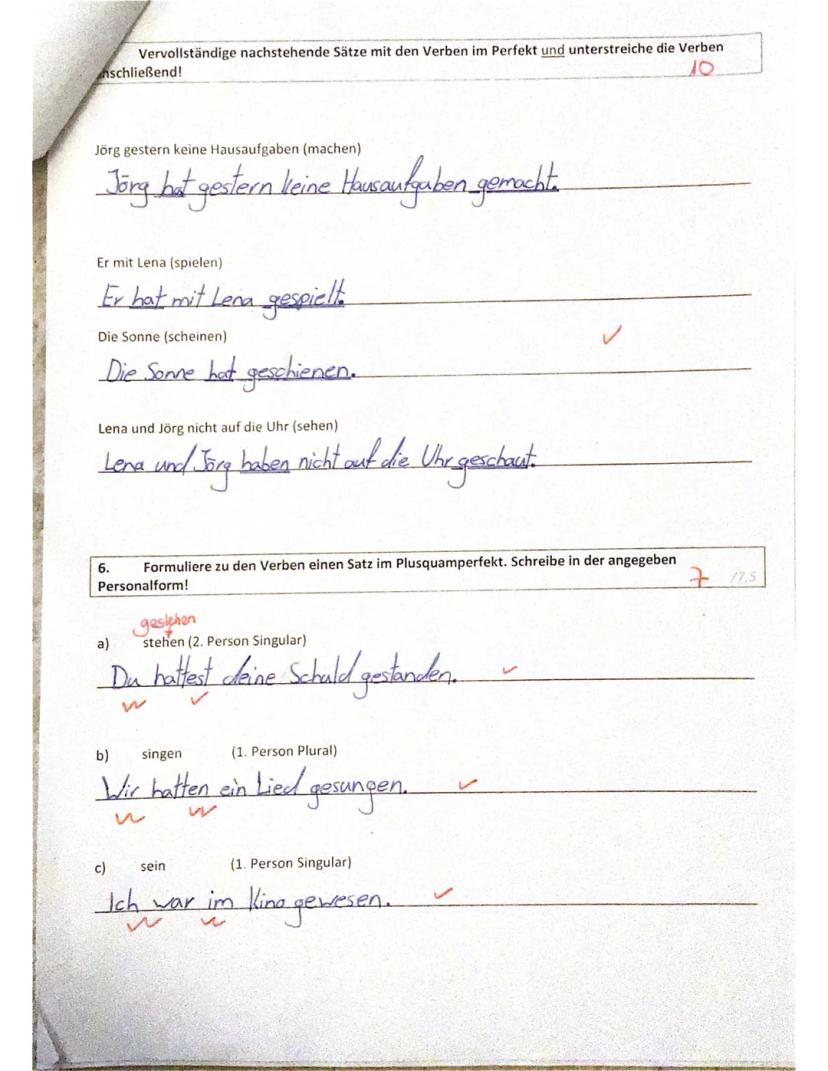 Vervollständige nachstehende Sätze mit den Verben im Perfekt und unterstreiche die Verben
nschließend!
10
Jörg gestern keine Hausaufgaben (machen)
Jörg hat gestern keine Hausaufgaben gemacht.
Er mit Lena (spielen)
Er hat mit Lena gespielt.
Die Sonne (scheinen)
Die Sonne hat geschienen.
Lena und Jörg nicht auf die Uhr (sehen)
Lena und Jörg haben nicht auf die Uhr geschaut.
6. Formuliere zu den Verben einen Satz im Plusquamperfekt. Schreibe in der angegeben
Personalform!
7 17.5
gestehen
a) stehen (2. Person Singular)
Du hattest deine Schuld gestanden.
b) singen (1. Person Plural)
Wir hatten ein Lied gesungen.
c) sein (1. Person Singular)
Ich war im Kino gewesen.